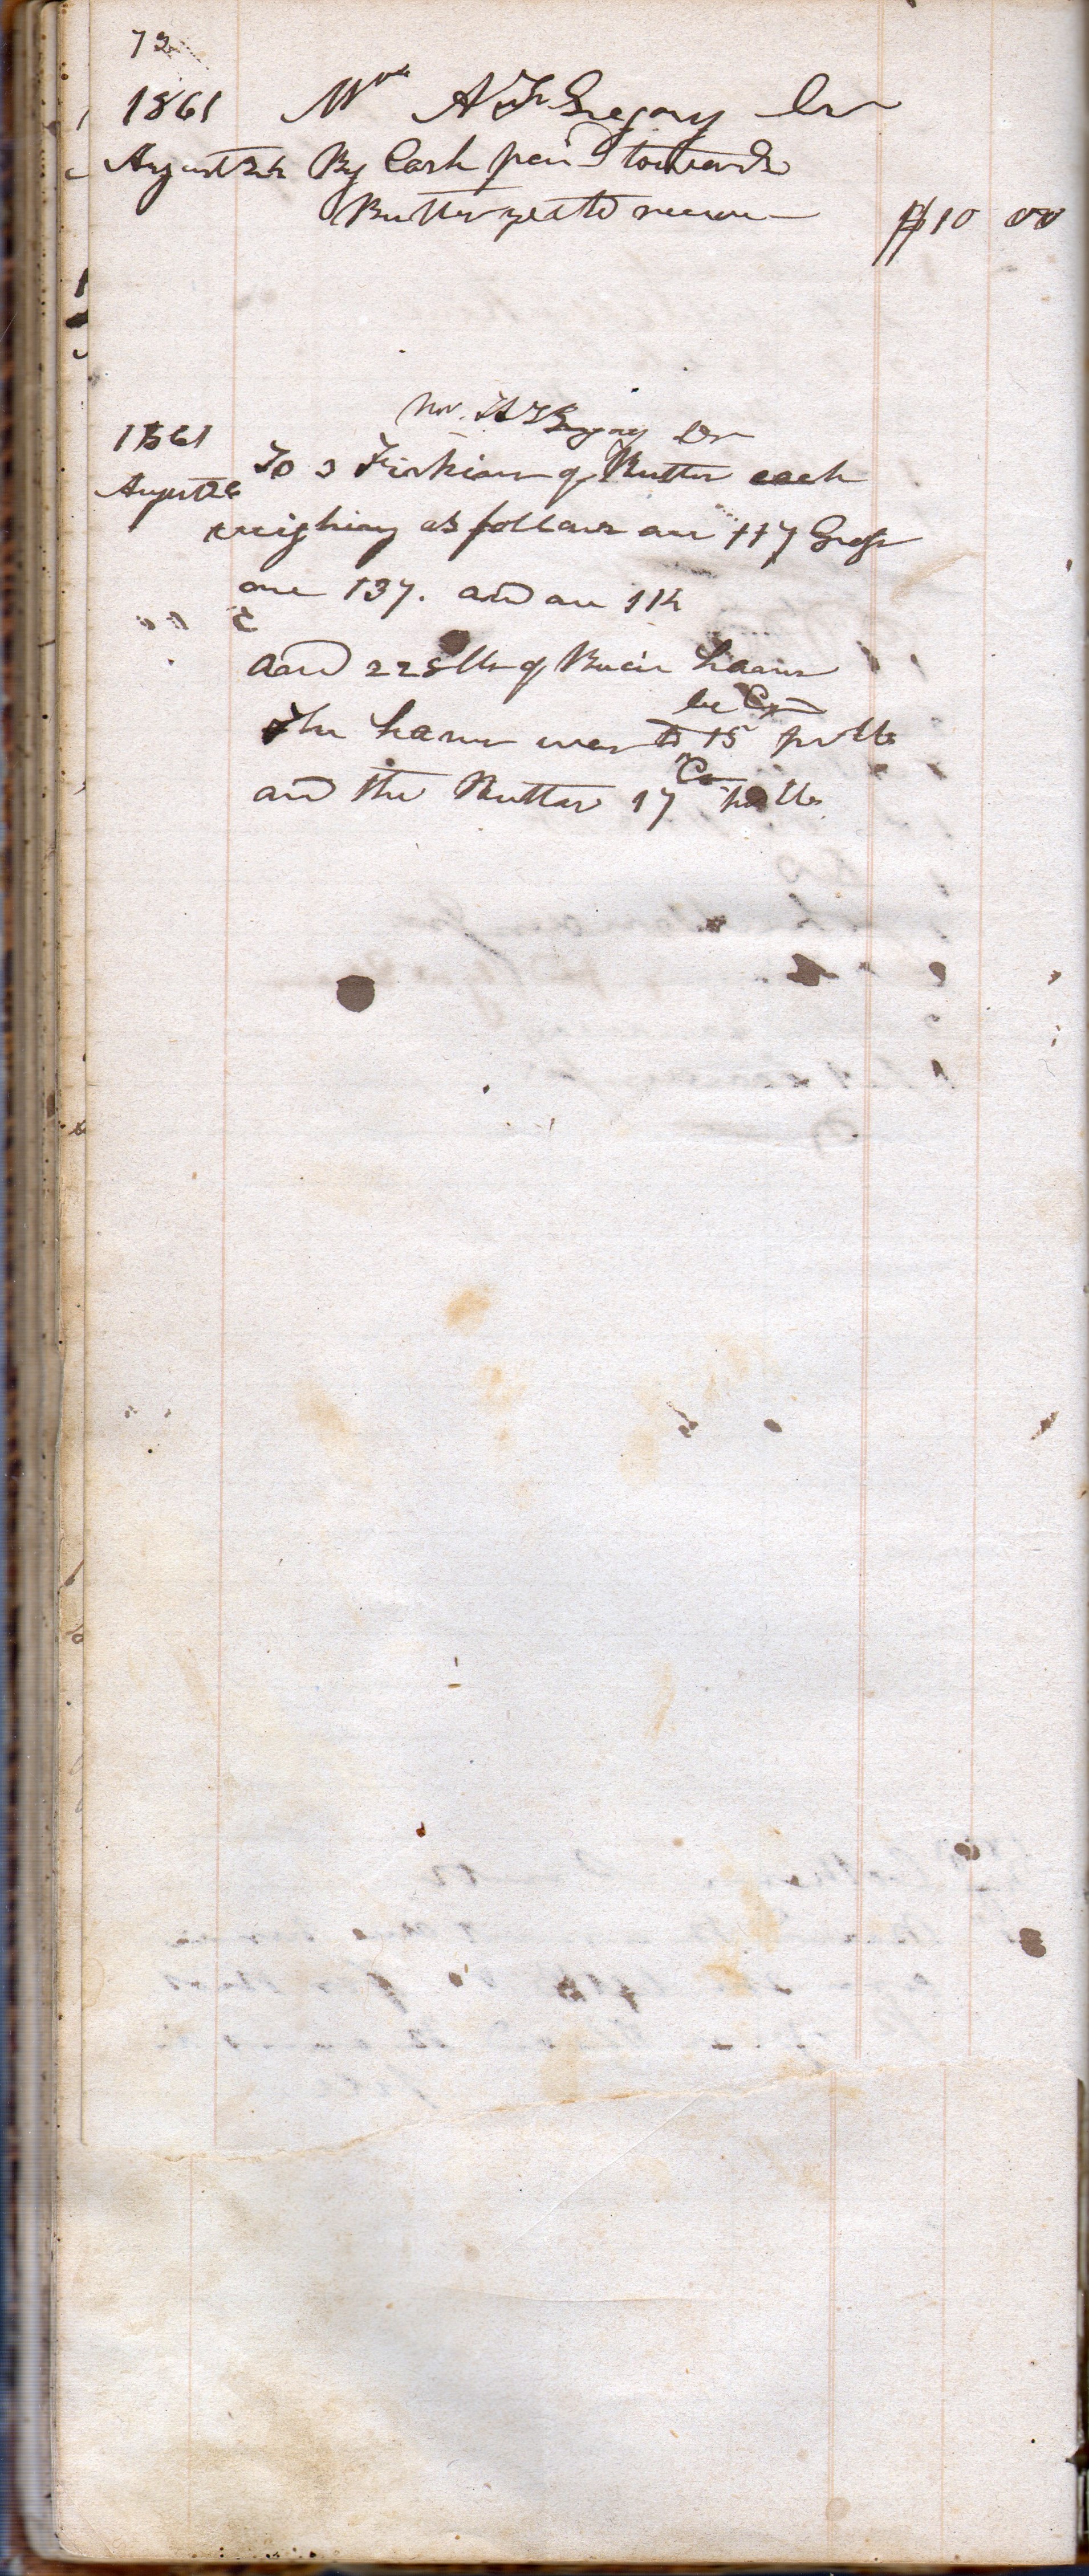 72
1861 A F Gregory Cr
August By Cash paid towards
Butter yet to receive $10 00
A F Gregory Dr
1861
To 3 Firkins of Butter each
August 26
weighing as follows one 117 Gross
one 137. and one 114
and 228 lb of hams
The hams were to be 15 Ct pr lb
and the Butter 17 Ct pr lb